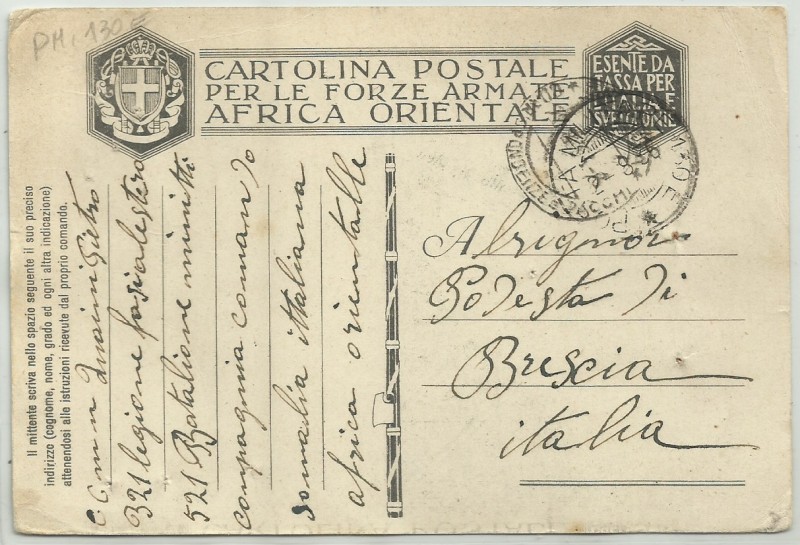 PM. 130E
CARTOLINA POSTALE
PER LE FORZE ARMATE
AFRICA ORIENTALE
ESENTE DA
TASSA PER
ITALIA E
130 E
Il mittente scriva nello spazio seguente il suo preciso
indirizzo (cognome, nome, grado ed ogni altra indicazione)
attenendosi alle istruzioni ricevute dal proprio comando.
Pietro
321 legione
521 Batalione
compagnia comando
somalia ittaliana
africa orientalle
Alsignor
Podesta di
Brescia
italia